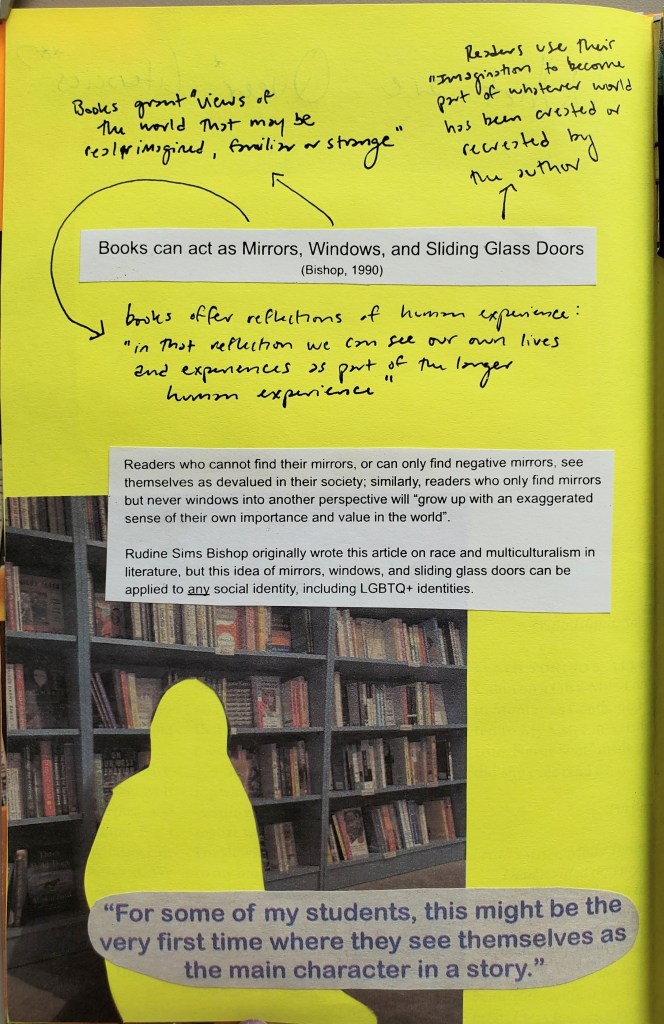 Books grant "views of
the world that may be
real or imagined, familiar or strange"
Readers use their
"Imagination to become
part of whatever world
has been created or
recreated by
the author
Books can act as Mirrors, Windows, and Sliding Glass Doors
(Bishop, 1990)
books offer reflections of human experience:
"in that reflection we can see our own lives
and experiences as part of the larger
human experience"
Readers who cannot find their mirrors, or can only find negative mirrors, see
themselves as devalued in their society; similarly, readers who only find mirrors
but never windows into another perspective will “grow up with an exaggerated
sense of their own importance and value in the world”.
Rudine Sims Bishop originally wrote this article on race and multiculturalism in
literature, but this idea of mirrors, windows, and sliding glass doors can be
applied to any social identity, including LGBTQ+ identities.
“For some of my students, this might be the
very first time where they see themselves as
the main character in a story.”